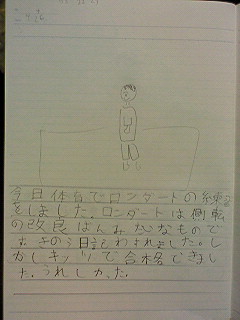 今日体育でロンダートの練習
をしました。ロンダートは側転
の改良はんみたいなもので
す。きのう日記わすれました。し
かしキッツで合格できまし
た。うれしかった。